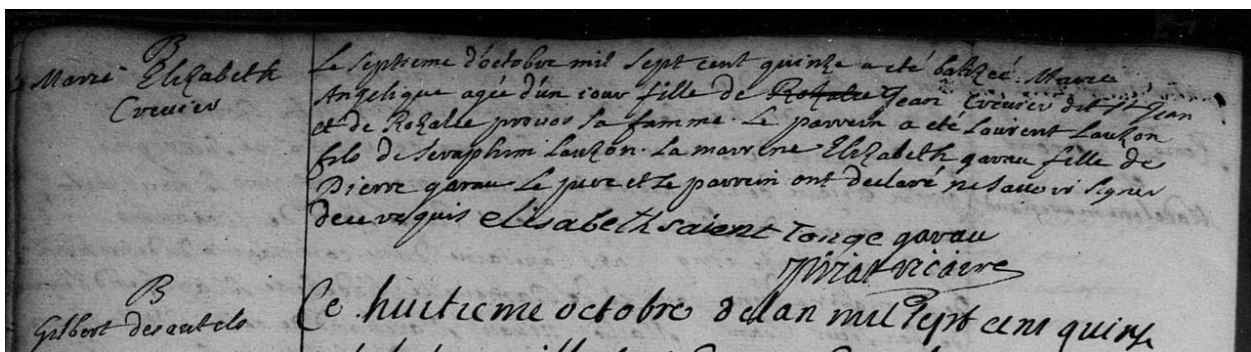 B
Marie Elizabeth
Crevier
Le septieme d'octobre mil sept cent quinze a eté batizée Marie
Angelique agée d'un iour fille de Rozalie Jean Crevier dit St Jean
et de Rozalie provos sa famme. Le parrein a eté Laurent Lauzon
fils de Seraphim Lauzon. La marrene Elizabeth garau fille de
Pierre garau Le pere et Le parrein ont declaré ne savoir signer
de ce requis elisabeth saient Tonge garau
priat vicaire
B
Gilbert desautels
Ce huitieme octobre de lan mil sept cent quinze